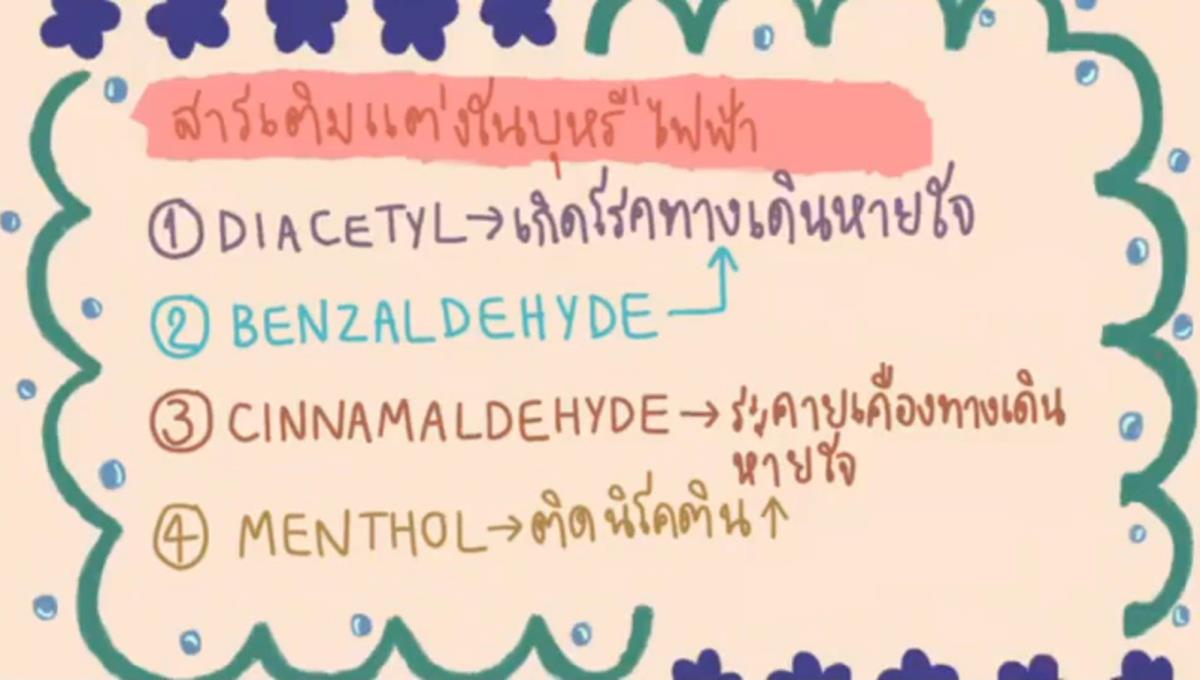 สารเติมแต่งในบุหรี่ไฟฟ้า
① DIACETYL → เกิดโรคทางเดินหายใจ
② BENZALDEHYDE
③ CINNAMALDEHYDE → ระคายเคืองทางเดิน
หายใจ
④ MENTHOL → ติดนิโคติน ↑